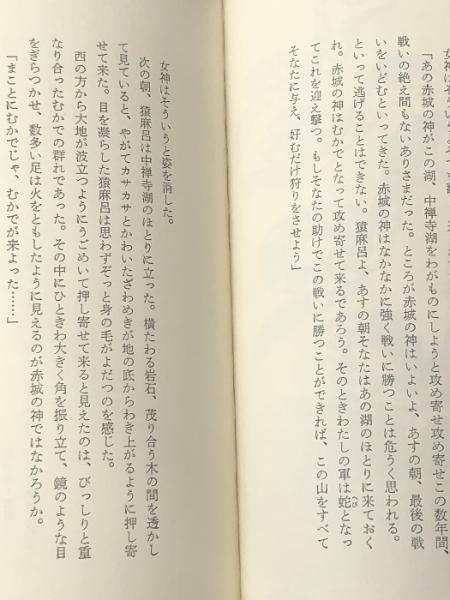 「あの赤城の神がこの湖、中禅寺湖をわがものにしようと攻め寄せ攻め寄せこの数年間、
戦いの絶え間もないありさまだった。ところが赤城の神はいよいよ、あすの朝、最後の戦
いをいどむといってきた。赤城の神はなかなかに強く戦いに勝つことは危うく思われる。
といって逃げることはできない。猿麻呂よ、あすの朝そなたはあの湖のほとりに来ておく
れ。赤城の神はむかでとなって攻め寄せて来るであろう。そのときわたしの軍は蛇となっ
てこれを迎え撃つ。もしそなたの助けでこの戦いに勝つことができれば、この山をすべて
そなたに与え、好むだけ狩りをさせよう」
女神はそういうと姿を消した。
次の朝、猿麻呂は中禅寺湖のほとりに立った。横たわる岩石、茂り合う木の間を透かし
て見ていると、やがてカサカサとかわいたざわめきが地の底からわき上がるように押し寄
せて来た。目を凝らした猿麻呂は思わずぞっと身の毛がよだつのを感じた。
西の方から大地が波立つようにうごめいて押し寄せて来ると見えたのは、びっしりと重
なり合ったむかでの群れであった。その中にひときわ大きく角を振り立て、鏡のような目
をぎらつかせ、数多い足は火をともしたように見えるのが赤城の神ではなかろうか。
「まことにむかでじゃ、むかでが来よった……」